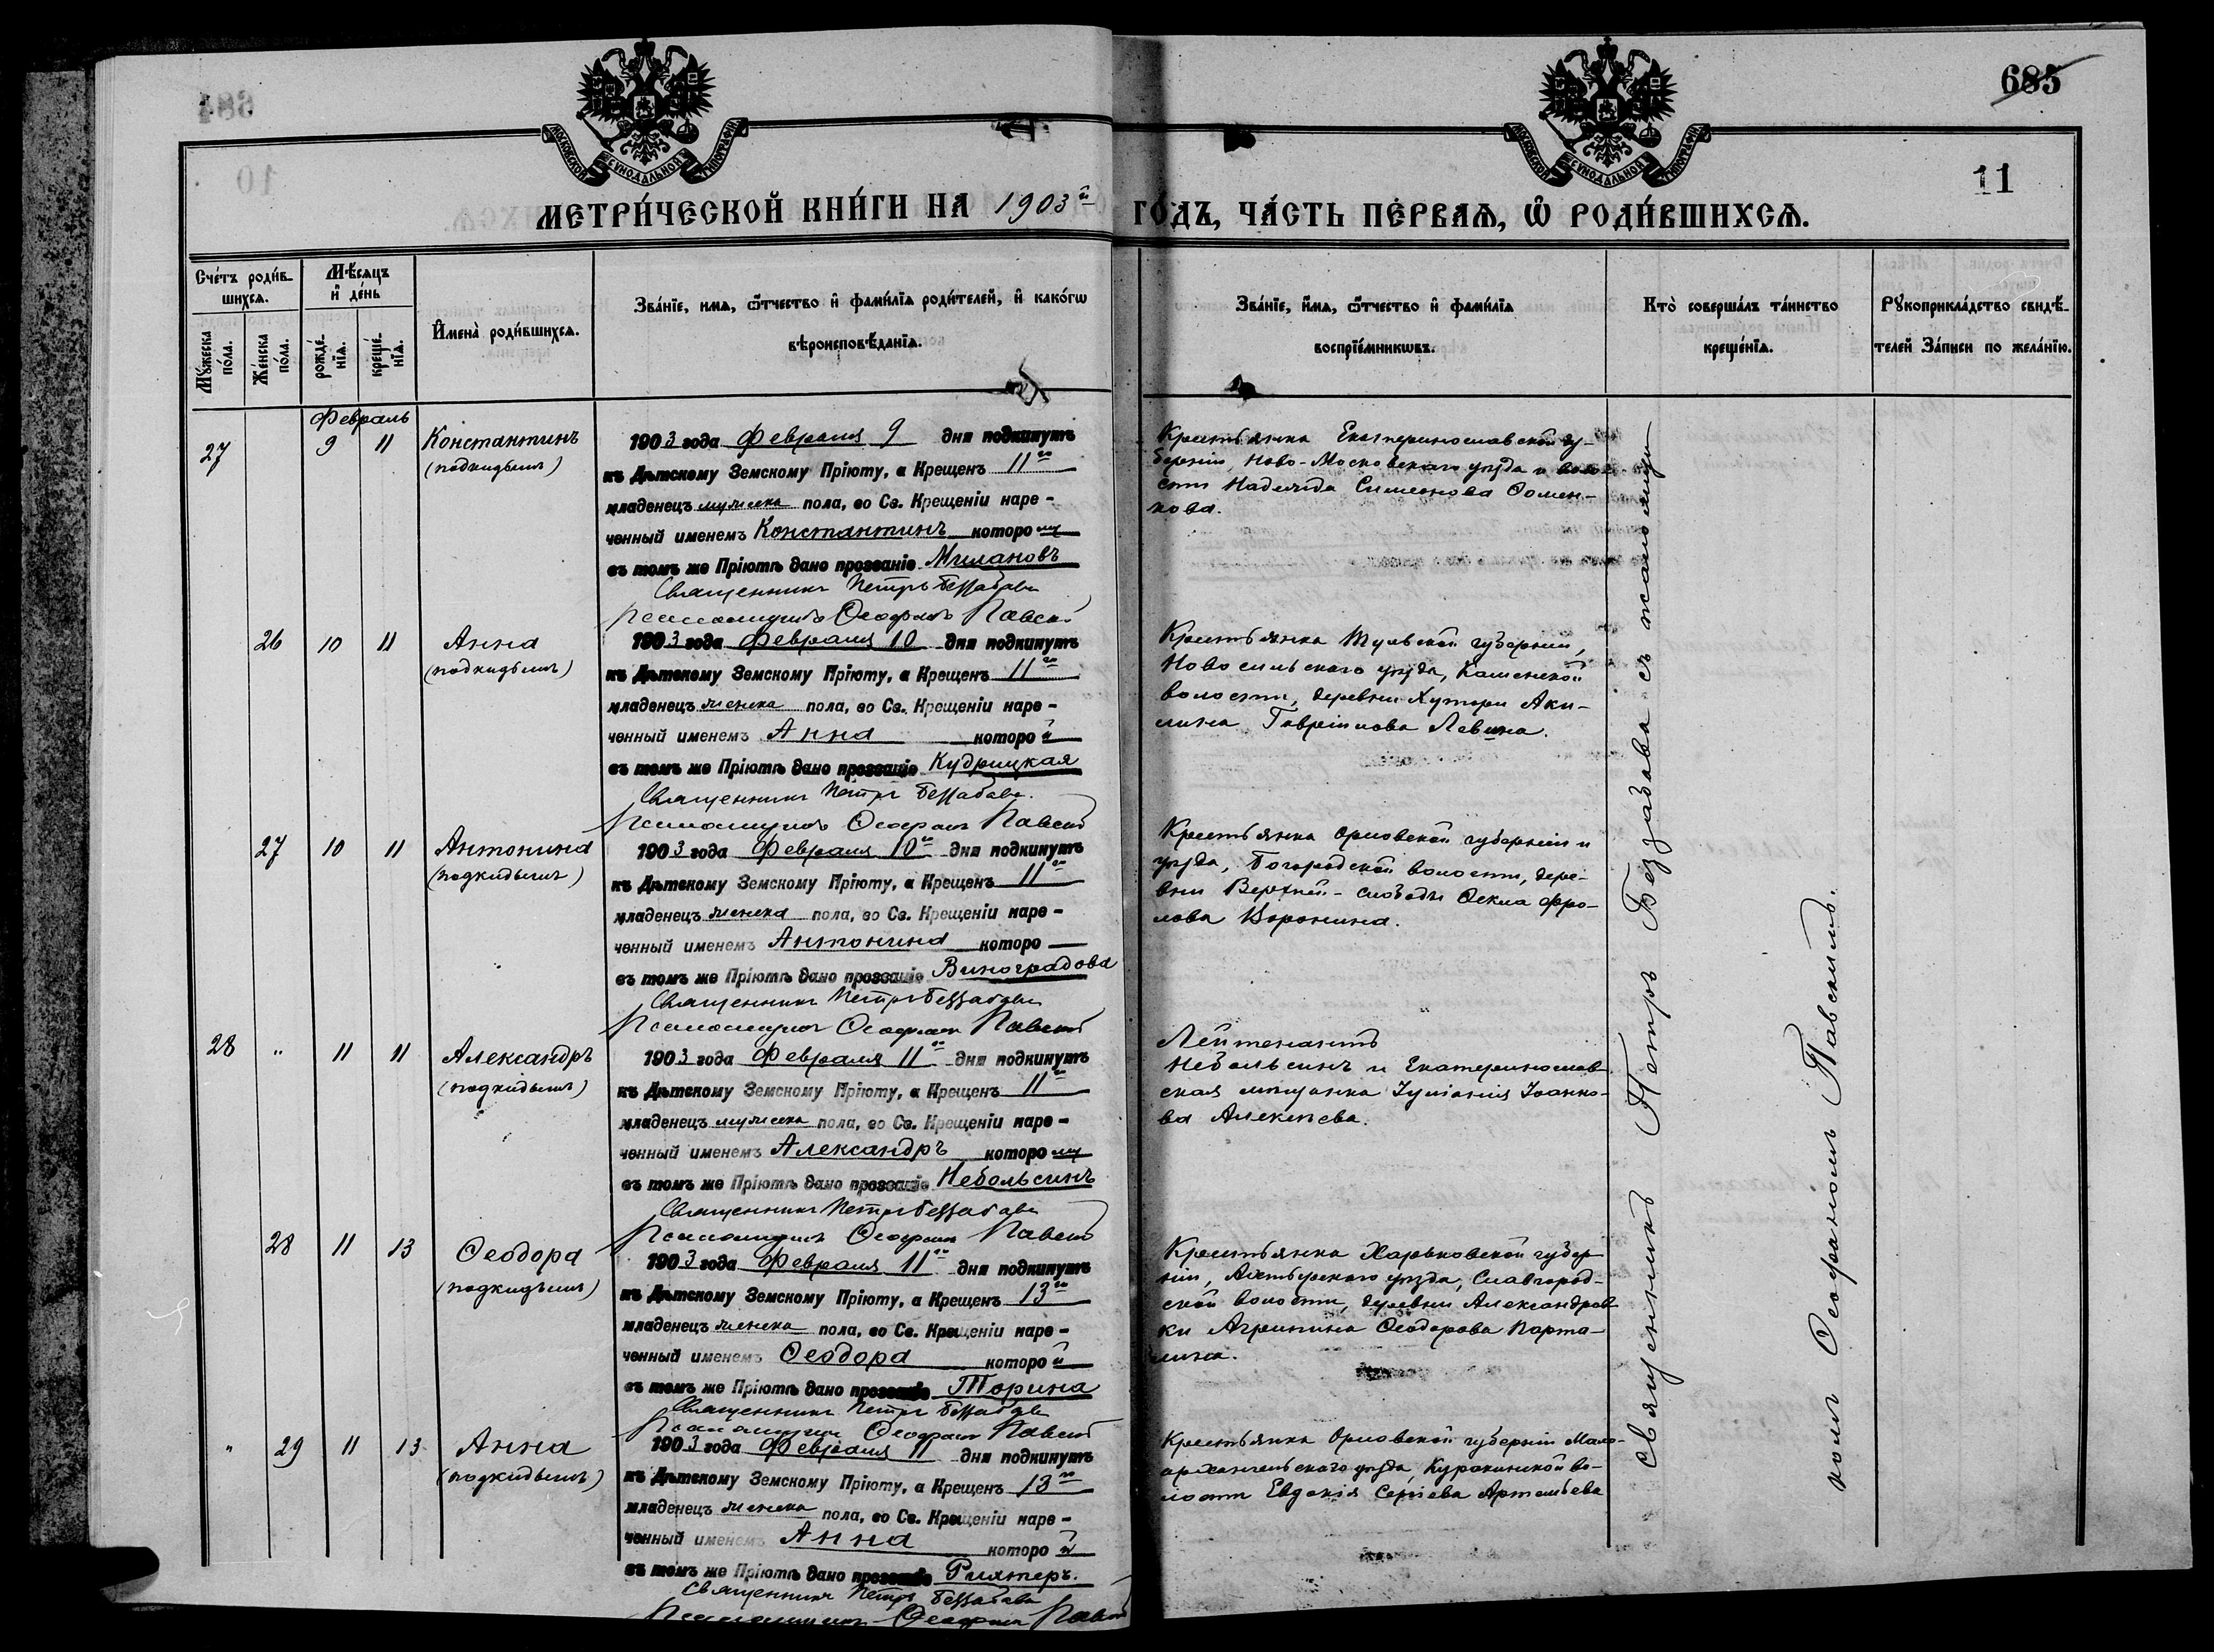 685
11
МОСКОВСКОЙ СѴНОДАЛЬНОЙ ТИПОГРАФІИ
МОСКОВСКОЙ СѴНОДАЛЬНОЙ ТИПОГРАФІИ
МЕТРИ́ЧЕСКОЙ КНИ́ГИ НА 1903й ГО́ДЪ, ЧА́СТЬ ПЕ́РВАѦ, Ѽ РОДИ́ВШИХСѦ.
Сче́тъ роди́в-
шихсѧ.
Мꙋ́жеска по́ла.
Же́нска по́ла.
Мѣ́сѧцъ
и де́нь
рожде́-
нїѧ.
креще́-
нїѧ.
И҆мена̀ роди́вшихсѧ.
Зва́нїе, и҆мѧ, ѻ҆́тчество и҆ фами́лїѧ роди́телей, и҆ како́гѡ
вѣроисповѣ́данїѧ.
Зва́нїе, и҆́мѧ, ѻ҆́тчество и҆ фами́лїѧ
воспрїе́мникѡвъ.
Кто̀ соверша́лъ та́инство
креще́нїѧ.
Рꙋкоприкла́дство свидѣ́-
телей За́писи по жела́нїю.
Февраль
27 9 11 Константинъ
(подкидышъ)
1903 года Февраля 9 дня подкинутъ
къ Дѣтскому Земскому Пріюту, а Крещенъ 11го
младенецъ мужеска пола, во Св. Крещеніи наре-
ченный именемъ Константинъ которому
въ томъ же Пріютѣ дано прозваніе Милановъ
Священникъ Петръ Беззабава
Псаломщикъ Ѳеофанъ Павскій
Крестьянка Екатеринославской гу-
берніи, Ново-Московскаго уѣзда и воло-
сти Надежда Симеонова Фомен-
кова.
26 10 11 Анна
(подкидышъ)
1903 года Февраля 10 дня подкинутъ
къ Дѣтскому Земскому Пріюту, а Крещенъ 11го
младенецъ женска пола, во Св. Крещеніи наре-
ченный именемъ Анна которой
въ томъ же Пріютѣ дано прозваніе Кудрицкая
Священникъ Петръ Беззабава.
Псаломщикъ Ѳеофанъ Павскій
Крестьянка Тульской губерніи,
Новосильскаго уѣзда, Каменской
волости, деревни Хутора Аки-
лина Гавріилова Левина.
27 10 11 Антонина
(подкидышъ)
1903 года Февраля 10го дня подкинутъ
къ Дѣтскому Земскому Пріюту, а Крещенъ 11го
младенецъ женска пола, во Св. Крещеніи наре-
ченный именемъ Антонина которо
въ томъ же Пріютѣ дано прозваніе Виноградова
Священникъ Петръ Беззабава
Псаломщикъ Ѳеофанъ Павскій
Крестьянка Орловской губерніи и
уѣзда, Богородской волости, дере-
вни Верхней-слободы Ѳекла Фро-
лова Воронина.
28 " 11 11 Александръ
(подкидышъ)
1903 года Февраля 11го дня подкинутъ
къ Дѣтскому Земскому Пріюту, а Крещенъ 11го
младенецъ мужеска пола, во Св. Крещеніи наре-
ченный именемъ Александръ которому
въ томъ же Пріютѣ дано прозваніе Небольсинъ
Священникъ Петръ Беззабава
Псаломщикъ Ѳеофанъ Павскій
Лейтенантъ
Небольсинъ и Екатеринослав-
ская мѣщанка Іуліанія Іоанно-
ва Алексѣева.
28 11 13 Ѳеодора
(подкидышъ)
1903 года Февраля 11го дня подкинутъ
къ Дѣтскому Земскому Пріюту, а Крещенъ 13го
младенецъ женска пола, во Св. Крещеніи наре-
ченный именемъ Ѳеодора которой
въ томъ же Пріютѣ дано прозваніе Торина
Священникъ Петръ Беззабава
Псаломщикъ Ѳеофанъ Павскій
Крестьянка Харьковской губер-
ніи, Ахтырскаго уѣзда, Славгород-
ской волости, деревни Александров-
ки Агрипина Ѳеодорова Парта-
лина.
" 29 11 13 Анна
(подкидышъ)
1903 года Февраля 11 дня подкинутъ
къ Дѣтскому Земскому Пріюту, а Крещенъ 13го
младенецъ женска пола, во Св. Крещеніи наре-
ченный именемъ Анна которой
въ томъ же Пріютѣ дано прозваніе Рихтеръ.
Священникъ Петръ Беззабава
Псаломщикъ Ѳеофанъ Павскій
Крестьянка Орловской губерніи Мало-
архангельскаго уѣзда, Куракинской во-
лости Евдокія Сергіева Артемьева
Священникъ Петръ Беззабава съ псаломщи-
комъ Ѳеофаномъ Павскимъ.